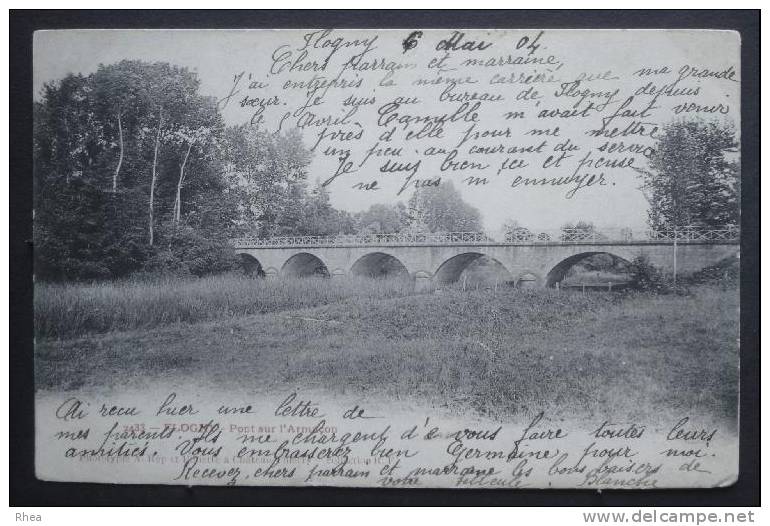 Flogny 6 Mai 04
Chers parrain et marraine,
J'ai entrepris la même carrière que ma grande
sœur. Je suis au bureau de Flogny depuis
le 8 Avril Camille m'avait fait venir
près d'elle pour me mettre
un peu au courant du service
Je suis bien ici et pense
ne pas m'ennuyer.
Ai reçu hier une lettre de
2433 - FLOGNY - Pont sur l'Armançon
mes parents. Ils me chargent de vous faire toutes leurs
amitiés. Vous embrasserez bien Germaine pour moi.
Recevez, chers parrain et marraine les bons baisers de
votre filleule. Blanche
Rhea
http://www.delcampe.net